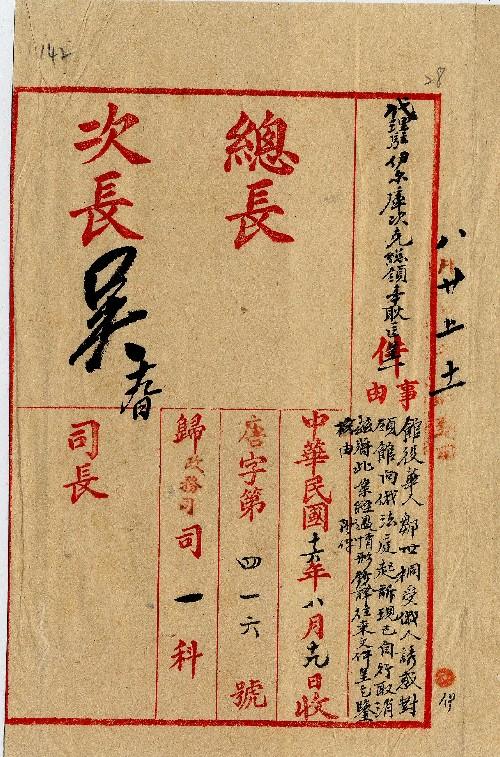 142
28
八月廿上土
代理駐伊尔庫次克總領事耿匡
件
事由
館役華人鄒世桐受俄人誘惑對
領館向俄法庭起訴現已自行取消
茲將此案經過情形錄譯往來文件呈乞鑒
核由 附件
總長
次長
吳
中華民國十六年八月十九日收
唐字第四一六號
歸政務司司一科
司長
伊